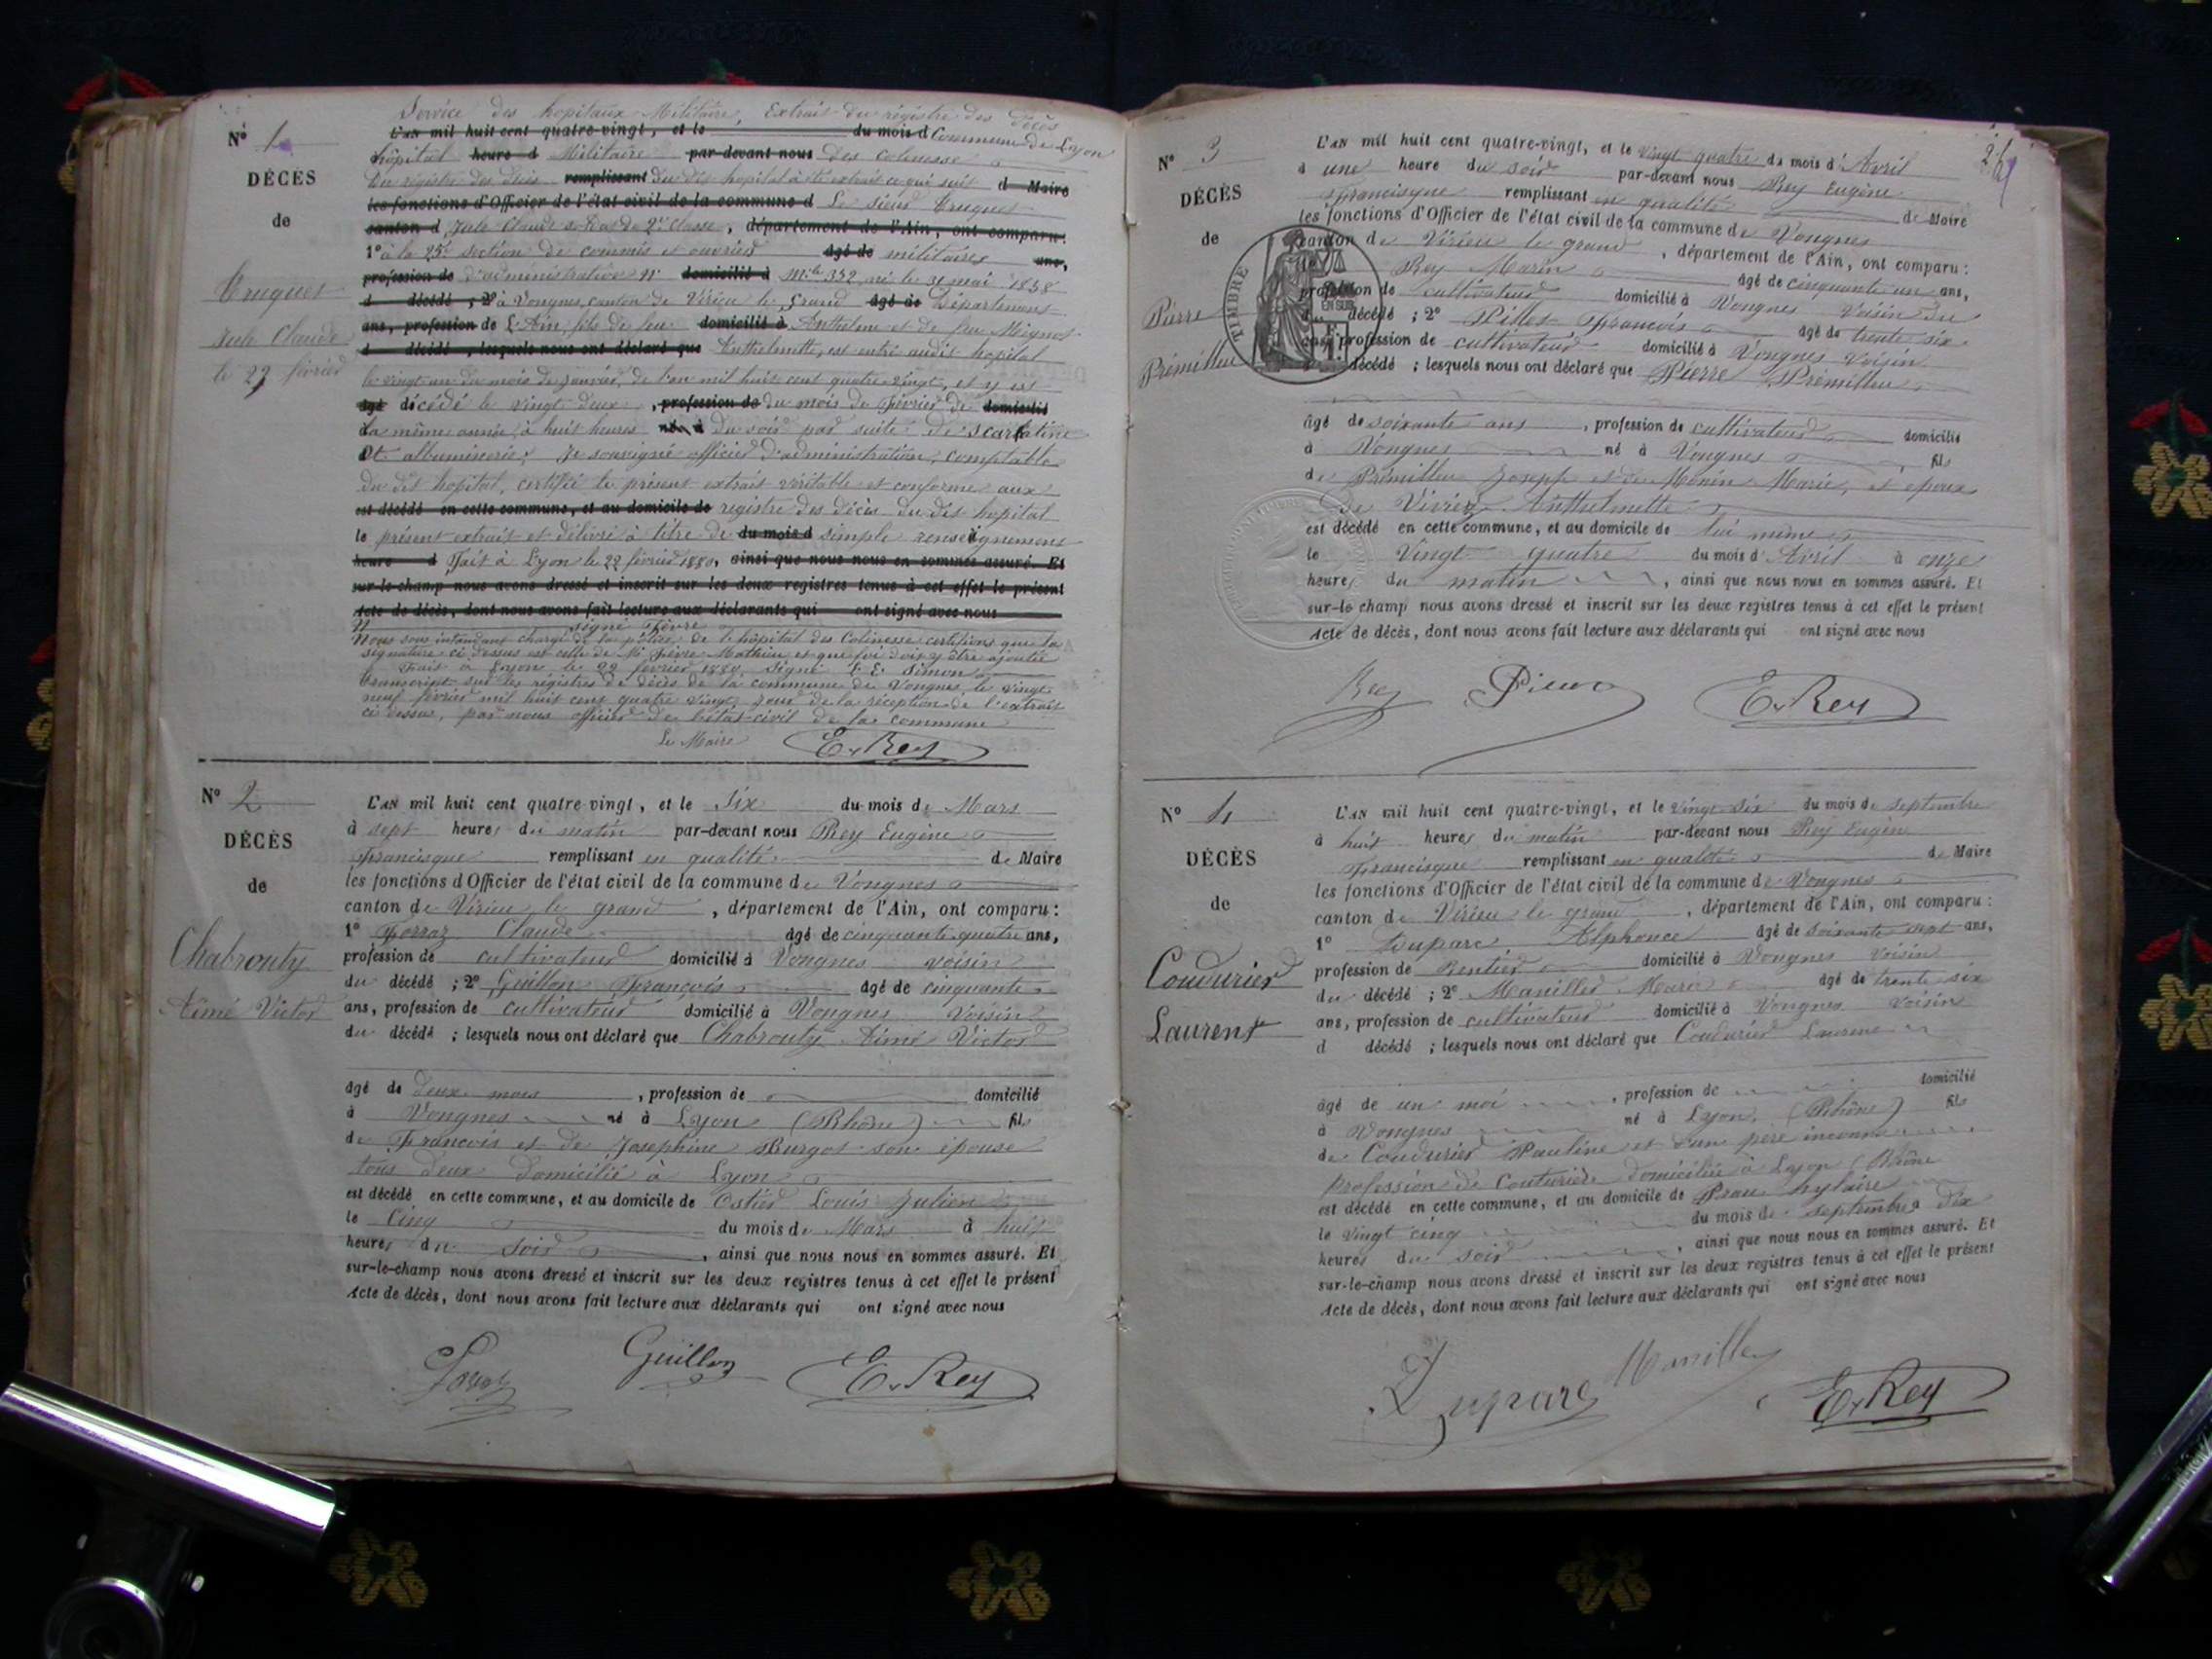 Service des hopitaux Militaire, Extrait du régistre des décès
L'AN mil huit cent quatre-vingt, et le du mois d Commune de Lyon
hôpital heure d Militaire par-devant nous des colinesse
Du registre des décès remplissant du dit hopital à été extrait ce qui suit d Maire
les fonctions d'Officier de l'état civil de la commune d Le sieur Truguet
canton d Jule Claude soldat de 2e Classe, département de l'Ain, ont comparu:
1° à la 25e section de commis et ouvriers âgé de militaires ans,
profession de d'administration N° domicilié à Mle 332, né le 31 mai 1858
d décédé ; 2° à Vongnes, canton de Virieu le grand âgé de Département
ans, profession de L'Ain, fils de feu domicilié à Anthelme et de feu Mignot
d décédé, lesquels nous ont déclaré que Anthelmette, est entré audit hopital
le vingt un du mois de Janvier, de l'an mil huit cent quatre vingt, et y est
âgé décédé le vingt deux, profession de du mois de Février de domicilié
la même année, à huit heures né à du soir par suite de scarlatine
Et albuminerie. Je soussigné officier d'administration, comptable
du dit hopital, certifie le présent extrait véritable et conforme aux
est décédé en cette commune, et au domicile de registre des décès du dit hopital
le présent extrait et délivré à titre de du mois d simple renseignement
heure d Fait à Lyon le 22 février 1880, ainsi que nous nous en sommes assuré. Et
sur-le-champ nous avons dressé et inscrit sur les deux registres tenus à cet effet le présent
Acte de décès, dont nous avons fait lecture aux déclarants qui ont signé avec nous
signé Fèvre
Nous sous intendant chargé de la police de l'hôpital des Colinesse certifions que la
signature ci dessus est celle de Mr Fèvre Mathieu et que foi doit y être ajoutée
Fait à Lyon le 22 février 1880 signé E. Simon
transcript sur les régistres de décès de la commune de Vongnes, le vingt
neuf février mil huit cent quatre vingt, jour de la réception de l'extrait
ci dessus, par nous officier de l'état-civil de la commune
Le Maire E. Rey
N° 1
DÉCÈS
de
Truguet
Jule Claude
le 22 février
N° 2
DÉCÈS
de
Chabrouty
Aimé Victor
L'AN mil huit cent quatre-vingt, et le Six du mois de Mars
à sept heures du matin par-devant nous Rey Eugène
Francisque remplissant en qualité de Maire
les fonctions d'Officier de l'état civil de la commune de Vongnes
canton de Virieu le grand, département de l'Ain, ont comparu:
1° Forraz Claude âgé de cinquante-quatre ans,
profession de cultivateur domicilié à Vongnes voisin
du décédé ; 2° Guillon François âgé de cinquante
ans, profession de cultivateur domicilié à Vongnes Voisin
du décédé ; lesquels nous ont déclaré que Chabrouty Aimé Victor
âgé de deux mois, profession de domicilié
à Vongnes né à Lyon (Rhône) fils
de François et de Josephine Burgot son épouse
tous deux domicilié à Lyon
est décédé en cette commune, et au domicile de Ostier Louis Julien
le Cinq du mois de Mars à huit
heures du soir, ainsi que nous nous en sommes assuré. Et
sur-le-champ nous avons dressé et inscrit sur les deux registres tenus à cet effet le présent
Acte de décès, dont nous avons fait lecture aux déclarants qui ont signé avec nous
Guillon E. Rey
N° 3
DÉCÈS
de
Pierre
Prémillieu
TIMBRE
L'AN mil huit cent quatre-vingt, et le vingt quatre du mois d'Avril
à une heure du soir par-devant nous Rey Eugène
Francisque remplissant en qualité de Maire
les fonctions d'Officier de l'état civil de la commune de Vongnes
canton de Virieu le grand, département de l'Ain, ont comparu:
Rey Marin âgé de cinquante un ans,
profession de cultivateur domicilié à Vongnes Voisin du
décédé ; 2° François âgé de trente six
ans, profession de cultivateur domicilié à Vongnes Voisin
décédé ; lesquels nous ont déclaré que Pierre Prémillieu
âgé de soixante ans, profession de cultivateur domicilié
à Vongnes né à Vongnes fils
de Prémillieu Joseph et de Monin Marie, et époux
de Anthelmette
est décédé en cette commune, et au domicile de lui même
le Vingt quatre du mois d'Avril à onze
heures du matin, ainsi que nous nous en sommes assuré. Et
sur-le-champ nous avons dressé et inscrit sur les deux registres tenus à cet effet le présent
Acte de décès, dont nous avons fait lecture aux déclarants qui ont signé avec nous
Rey E. Rey
N° 4
DÉCÈS
de
Coudurier
Laurent
L'AN mil huit cent quatre-vingt, et le vingt-six du mois de septembre
à huit heures du matin par-devant nous Rey Eugène
Francisque remplissant en qualité de Maire
les fonctions d'Officier de l'état civil de la commune de Vongnes
canton de Virieu le grand, département de l'Ain, ont comparu:
1° Duparc Alphonce âgé de soixante sept ans,
profession de Rentier domicilié à Vongnes Voisin
du décédé ; 2° Manillier Marin âgé de trente six
ans, profession de cultivateur domicilié à Vongnes Voisin
d décédé ; lesquels nous ont déclaré que Coudurier Laurent
âgé de un moi, profession de domicilié
à Vongnes né à Lyon, (Rhône) fils
de Coudurier Pauline et d'un père inconnu
profession de Couturière domiciliée à Lyon (Rhône
est décédé en cette commune, et au domicile de hylaire
le vingt cinq du mois de septembre à dix
heures du soir, ainsi que nous nous en sommes assuré. Et
sur-le-champ nous avons dressé et inscrit sur les deux registres tenus à cet effet le présent
Acte de décès, dont nous avons fait lecture aux déclarants qui ont signé avec nous
Duparc Manillier E. Rey